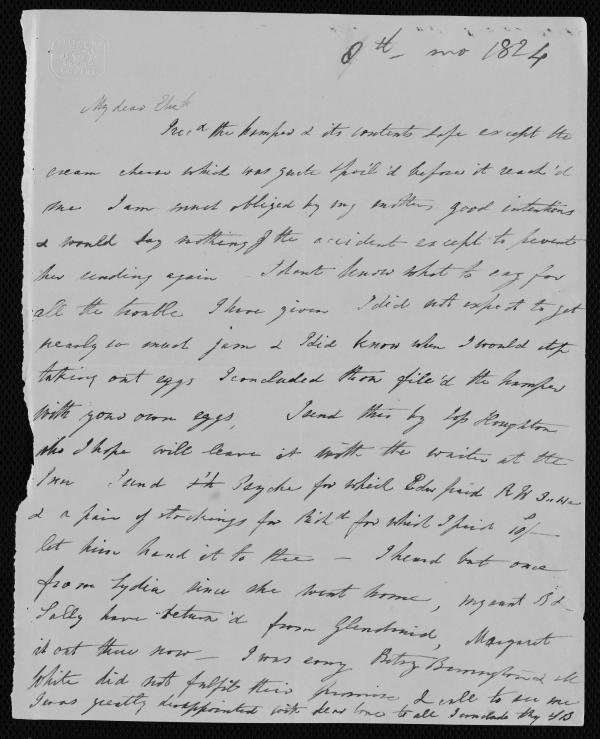 8th mo 1824
My dear Eliz
I rec.d the hamper & its contents safe except the
cream cheese which was quite spoil'd before it reach'd
me I am much obliged by my mothers good intentions
& would say nothing of the accident except to prevent
her sending again - I dont know what to say for
all the trouble I have given I did not expect to get
nearly so much jam & I did know when I would stop
taking out eggs I concluded thou fill'd the hamper
with your own eggs, I send this by Houghton
who I hope will leave it with the waiter at the
Inn I send Psyche for which Edw paid
& a pair of stockings for Rich.d for which I paid 10/-
let him hand it to thee - I heard but once
from Lydia since she went home, my aunt &
Sally have return'd from Glendruid, Margaret
is out there now - I was sorry Betsy Barrington & M
White did not fulfil their promise & call to see me
I was greatly disappointed with dear love to all I conclude thy